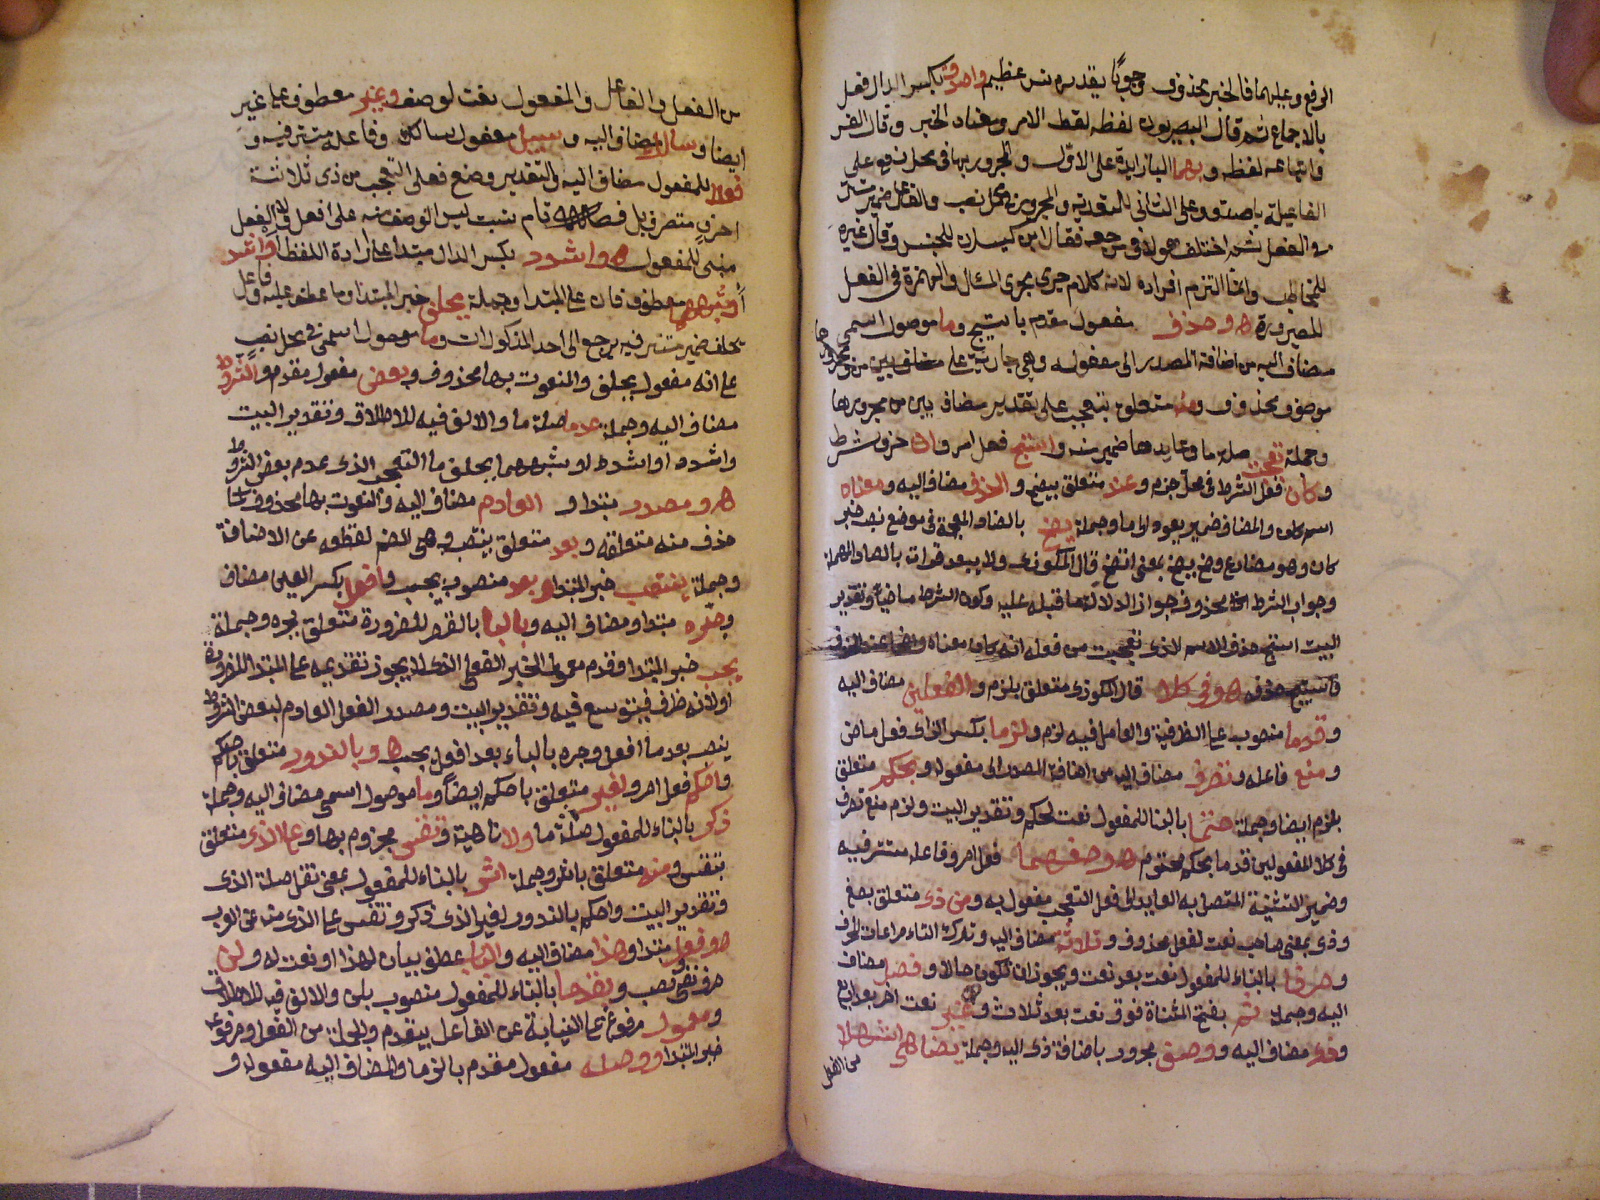 الرفع وعليهما فالخبر محذوف وجوبا بتقديره شىء عظيم واصدق بكسر الدال فعل
بالاجماع ثم قال البصريون لفظه لفظ الامر ومعناه الخبر وقال الفر
لفظه و بهما البا زايدة على الاول والمجرور بها فى محل رفع على
الفاعلية باصدق وعلى الثانى للتعدية والمجرور فى محل نصب والفاعل ضمير مستتر
فى الفعل ثم اختلف هولاء فى مرجعه فقال ابن كيسان للحسن وقال غيره
للمخاطب وانما التزم افراده لانه كلام جرى مجرى المثال والهمزة فى الفعل
للصيرورة ه وحذف مفعول مقدم باستبح وما موصول اسمى
مضاف اليه من اضافة المصدر الى مفعوله وهى جارية على
موصوف محذوف ومنه متعلق بتعجب على تقدير مضاف بين من ومجرورها
وجملة تعجبت صلة ما وعايدها ضمير منه واستبح فعل امر وان حرف شرط
وكان فعل الشرط فى محل جزم وعند متعلق بيضح والحذف مضاف اليه ومعناه
اسم كان والمضاف ضمير يعود الى ما وجملة يضح بالضاد المعجمة فى موضع نصب خبر
كان وهو مضارع وضح يضح بمعنى اتضح قال المكودى ولا يبعد قراءته بالصاد المهملة
وجواب الشرط محذوف جوازا لدلالة ما قبله عليه وكون الشرط ماضيا وتقدير
البيت استبح حذف الاسم الذى تعجبت من فعله ان كان معناه واضحا عند الحذف
فاستبح حذفه ه وفى كلا قال المكودى متعلق بلزم والفعلين مضاف اليه
وقدما منصوب على الظرفية والعامل فيه لزم ولزما بكسر الزاى فعل ماض
ومنع فاعله وتصرف مضاف اليه من اضافة المصدر الى مفعوله وبحكم متعلق
بلزم ايضا وجملة حتما بالبنا للمفعول نعت لحكم وتقدير البيت ولزم منع تصرف
فى كلا الفعلين قدما بحكم محتوم ه وصغهما فعل امر وفاعله مستتر فيه
وضمير التثنية المتصل به العايد الى فعل التعجب مفعول به ومن ذى متعلق بصغ
وذى بمعنى صاحب نعت لفعل محذوف وثلاث مضاف اليه وترك التاء مراعات للحرف
وصرفا بالبناء للمفعول نعت بعد نعت ويجوز ان تكون حالا وفضل مضاف
اليه وجملة تم بفتح المثناة فوق نعت بعد ثلاث وغير نعت اخر بعد اربع
وذى مضاف اليه ووصف مجرور باضافة ذى اليه وجملة يضاهى اشهلا
من الفعل
من الفعل والفاعل والمفعول نعت لوصف وغير معطوف على غير
ايضا وسالك مضاف اليه وسبيل مفعول سالك وفاعله مستتر فيه و
فعلا للمفعول مضاف اليه والتقدير وضع فعلى التعجب من ذى ثلاثة
احرف متصرف قابل فضل تام مثبت ليس الوصف منه على افعل ولا الفعل
مبنى للمفعول ه واشدد بكسر الدال مبتدا على ارادة اللفظ او اشد
او شبههما معطوفان على المبتدا وجملة يخلف خبر المبتدا وما عطف عليه وفاعل
يخلف ضمير مستتر فيه يرجع الى احد المذكورات وما موصول اسمى فى محل نصب
على انه مفعول يخلف والمنعوت بها محذوف وبعض مفعول مقدم والشروط
مضاف اليه وجملة عدما صلة ما والالف فيه للاطلاق وتقدير البيت
واشدد او اشد او شبههما يخلف ما التعجب الذى عدم بعض الشروط
ه ومصدر مبتدا و العادم مضاف اليه والمنعوت بها محذوف
حذف منه متعلقه وبعد متعلق ينتصب وهى الضم لقطعه عن الاضافة
وجملة ينتصب خبر المبتدا وبعد منصوب بيجب وافعل بكسر العين مضاف
وجره مبتدا ومضاف اليه وبالبا بالقصر للضرورة متعلق بجره وجملة
يجب خبر المبتدا وقدم معمول الخبر الفعلى الذى لا يجوز تقديمه على المبتدا للضرورة
او لانه ظرف فيتوسع فيه وتقدير البيت ومصدر الفعل العادم لبعض الشروط
ينصب بعد ما افعل وجره بالباء بعد افعل يجب ه وبالندور متعلق باحكم
واحكم فعل امر ولغير متعلق باحكم ايضا وما موصول اسمى مضاف اليه وجملة
ذكر بالبناء للمفعول صلة ما ولا ناهية وتقس مجزوم بها وعلى الذى متعلق
بتقس ومنه متعلق باثر وجملة اثر بالبناء للمفعول بمعنى نقل صلة الذى
وتقدير البيت واحكم بالندور لغير الذى ذكر ولا تقس على الذى
ه وفعل مبتدا وهذا مضاف اليه والباب عطف بيان لهذا او نعت له ولن
حرف نفى ونصب ويقدما بالبناء للمفعول منصوب بلن والالف فيه للاطلاق
ومعمول مرفوع على النيابة عن الفاعل بيقدم والجملة من الفعل ومرفوعه
خبر المبتدا ووصله مفعول مقدم بالزما والمضاف اليه مفعوله و